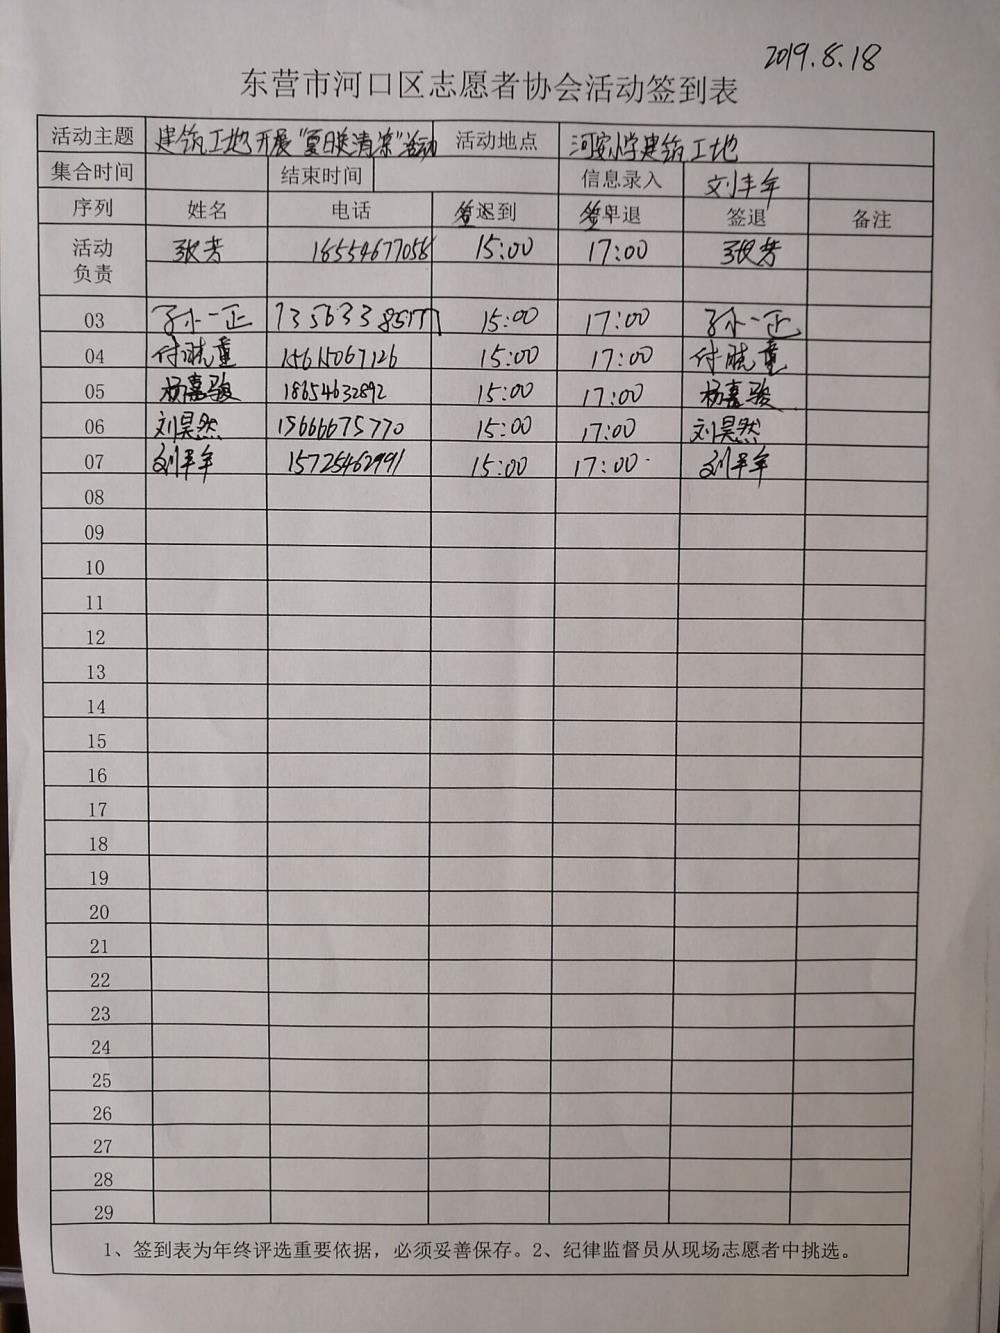 2019.8.18
东营市河口区志愿者协会活动签到表
活动主题 建筑工地开展“夏日送清凉”活动 活动地点 河安小学建筑工地
集合时间 结束时间 信息录入 刘丰年
序列 姓名 电话 签到 签退 签退 备注
活动负责 张芳 18554677058 15:00 17:00 张芳
03 孙一正 15:00 17:00 孙一正
04 付晓童 15615067126 15:00 17:00 付晓童
05 杨嘉骏 18654632892 15:00 17:00 杨嘉骏
06 刘昊然 15666675770 15:00 17:00 刘昊然
07 刘丰年 15725462991 15:00 17:00 刘丰年
08
09
10
11
12
13
14
15
16
17
18
19
20
21
22
23
24
25
26
27
28
29
1、签到表为年终评选重要依据，必须妥善保存。2、纪律监督员从现场志愿者中挑选。